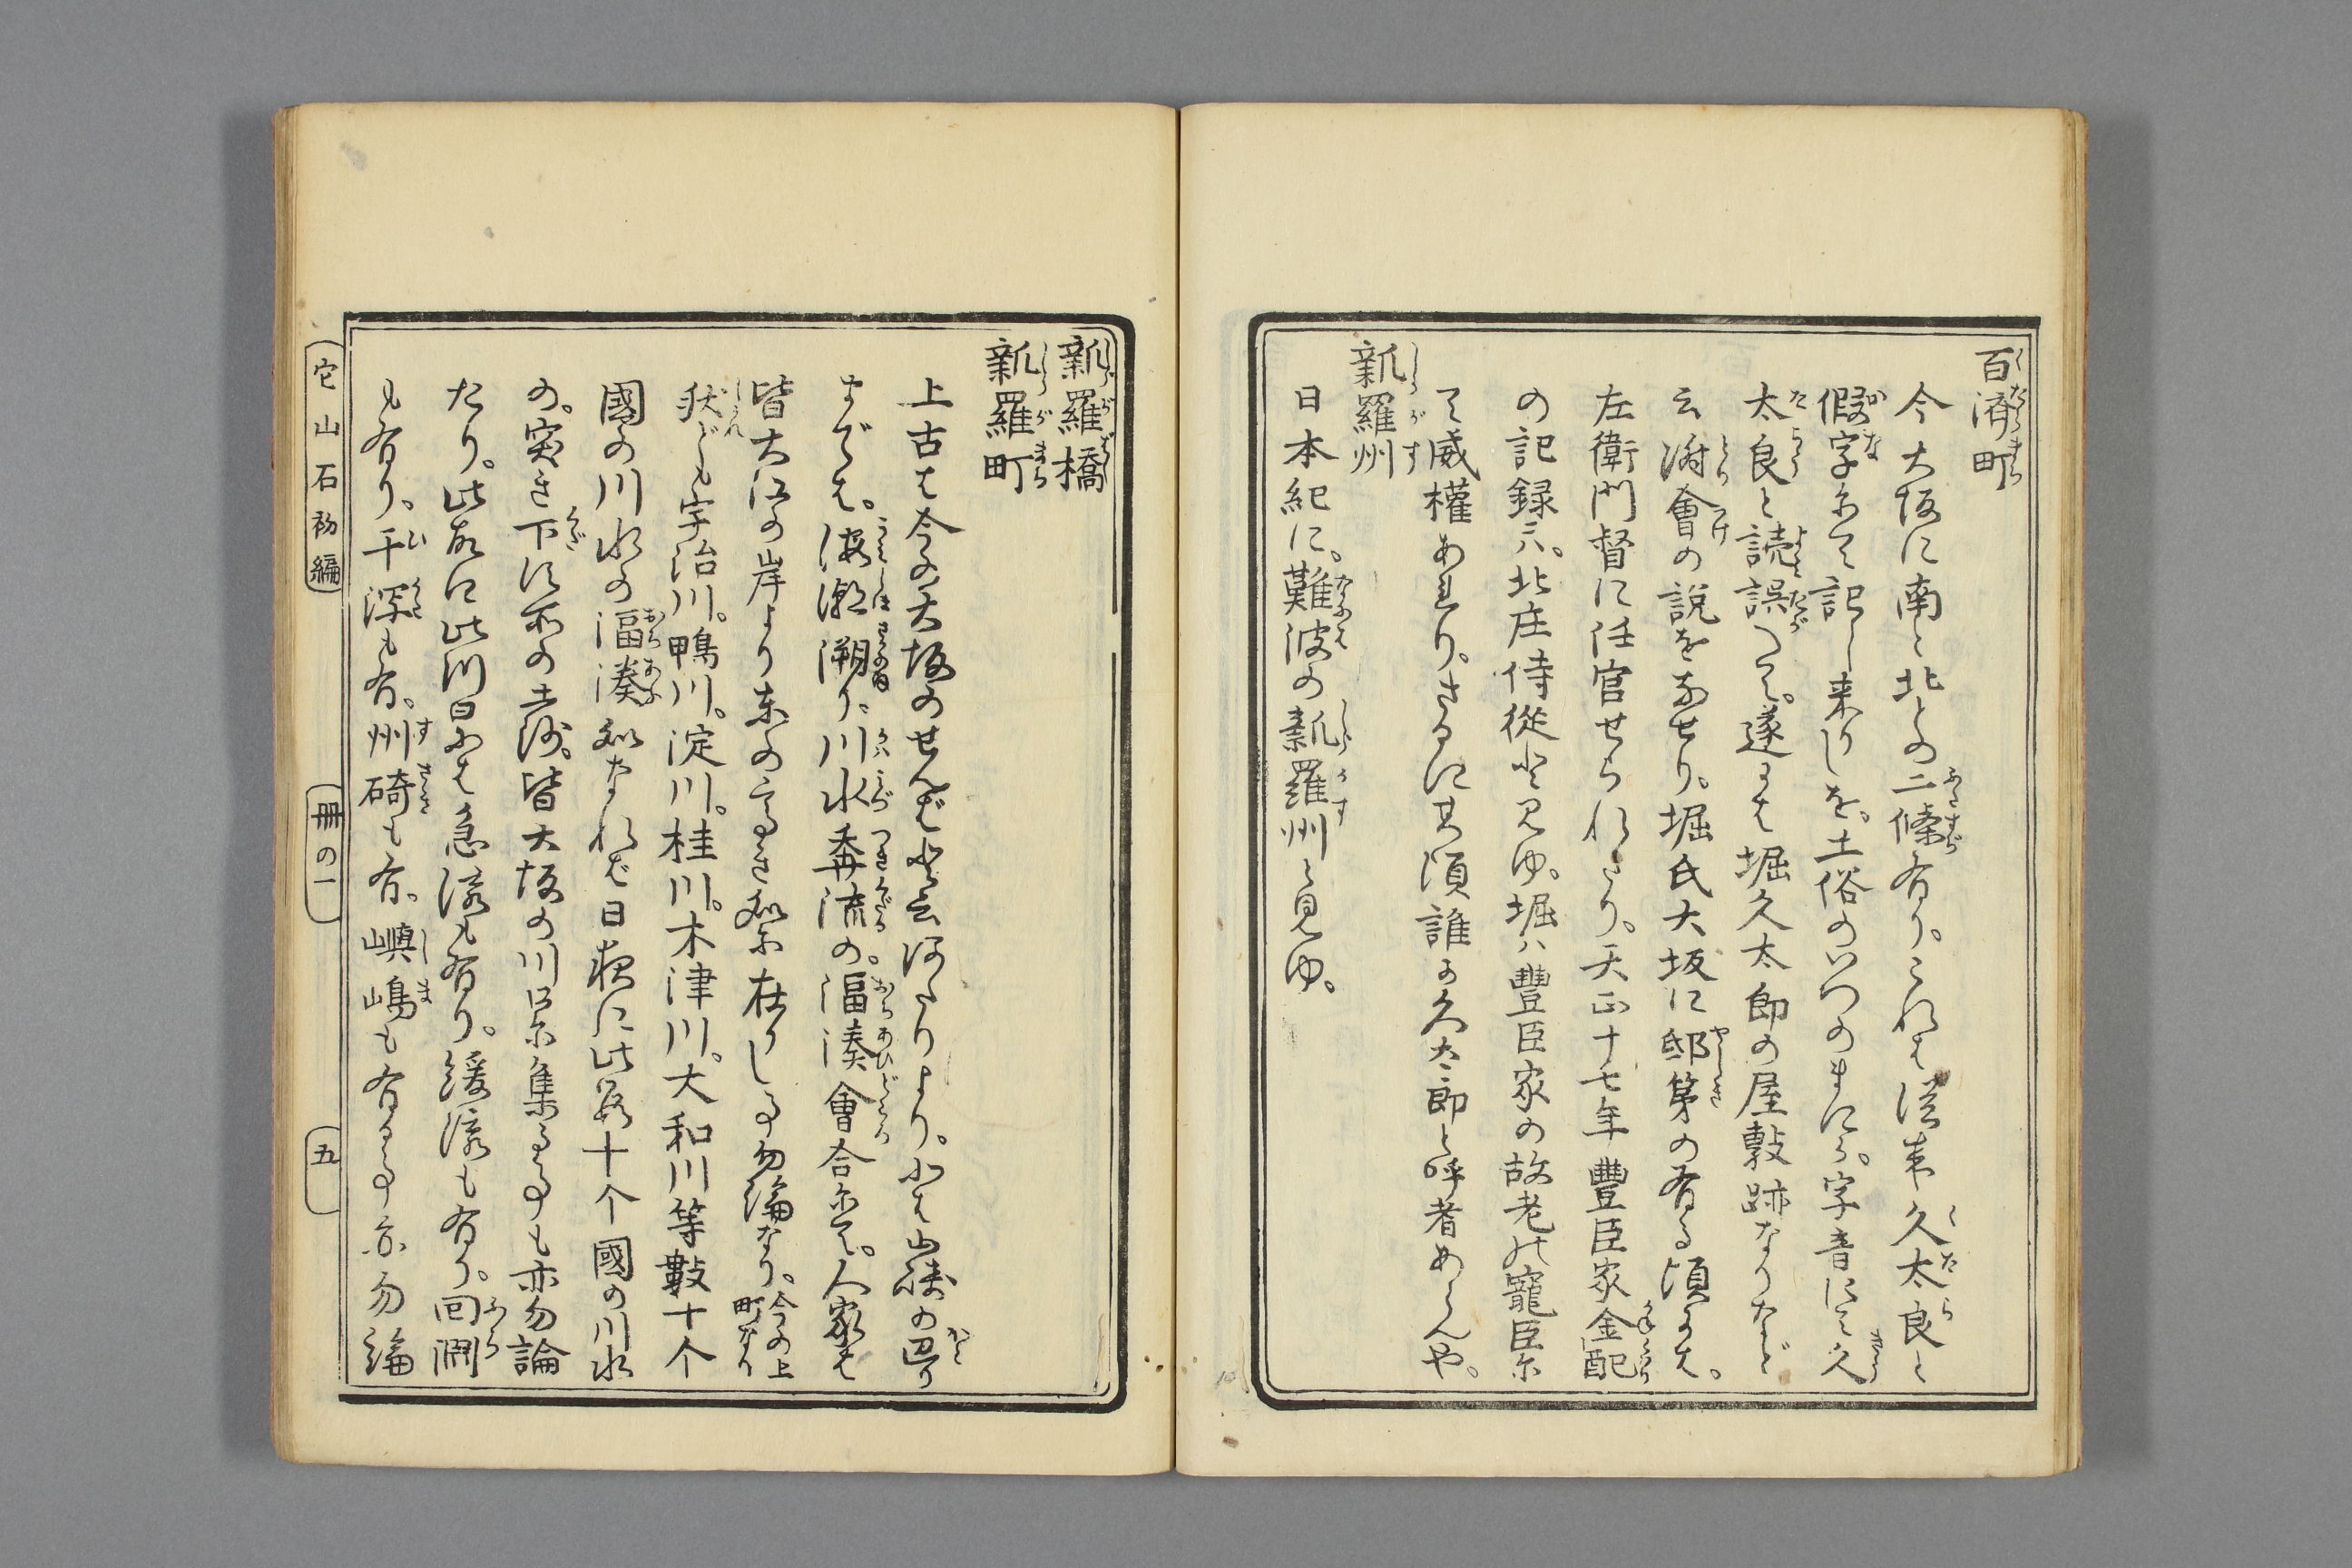 百濟町
今大坂に南と北との二條有り。これは從来久太良と
假字にて記し来りしを。土俗のいつのまにか。字音にて久
太良と読誤つて。遂には堀久太郎の屋敷跡なりなど
云溡會の説をなせり。堀氏大坂に邸第の有る頃は。
左衛門督に任官せられたり。天正十七年豐臣家金配
の記録ニハ。北庄侍從と見ゆ。堀ハ豐臣家の故老の寵臣に
て威權あれり。さるに其頃誰か久太郎と呼者あらんや。
新羅州
日本紀に。難波の新羅州と見ゆ。
新羅橋
新羅町
上古は今の大坂のせんばと云ほとりより。北は山﨑の辺り
までは。海潮溯り。川水奔流の。湢湊會合にて。人家は
皆大江の岸より東の高き処に在りし事勿論なり。今の上町なり
然ども宇治川。鴨川。淀川。桂川。木津川。大和川等數十个
國の川水の湢湊処なれば日夜に此數十个國の川水
の。突き下す所の土砂。皆大坂の川口に集る事も亦勿論
たり。此故に此川口には急流も有り。緩流も有り。回淵
も有り。干深も有。州碕も有。嶼嶋も有る事亦勿論
它山石初編
冊の一
五